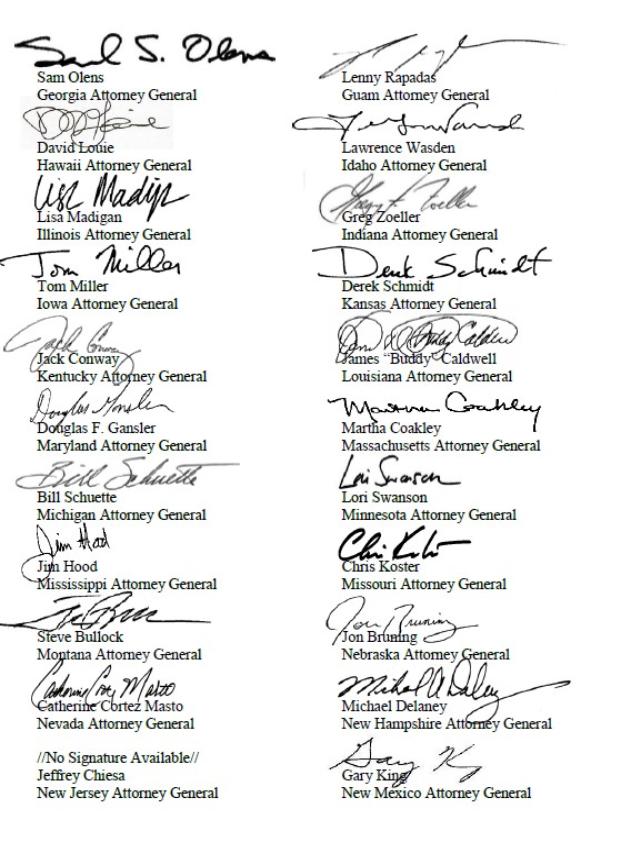 Sam S. Olens
Sam Olens
Georgia Attorney General
Lenny Rapadas
Guam Attorney General
David Louie
Hawaii Attorney General
Lawrence Wasden
Idaho Attorney General
Lisa Madigan
Lisa Madigan
Illinois Attorney General
Greg F. Zoeller
Greg Zoeller
Indiana Attorney General
Tom Miller
Tom Miller
Iowa Attorney General
Derek Schmidt
Derek Schmidt
Kansas Attorney General
Jack Conway
Jack Conway
Kentucky Attorney General
James “Buddy” Caldwell
Louisiana Attorney General
Douglas Gansler
Douglas F. Gansler
Maryland Attorney General
Martha Coakley
Martha Coakley
Massachusetts Attorney General
Bill Schuette
Bill Schuette
Michigan Attorney General
Lori Swanson
Lori Swanson
Minnesota Attorney General
Jim Hood
Jim Hood
Mississippi Attorney General
Chris Koster
Chris Koster
Missouri Attorney General
Steve Bullock
Montana Attorney General
Jon Bruning
Jon Bruning
Nebraska Attorney General
Catherine Cortez Masto
Catherine Cortez Masto
Nevada Attorney General
Michael A. Delaney
Michael Delaney
New Hampshire Attorney General
//No Signature Available//
Jeffrey Chiesa
New Jersey Attorney General
Gary King
Gary King
New Mexico Attorney General